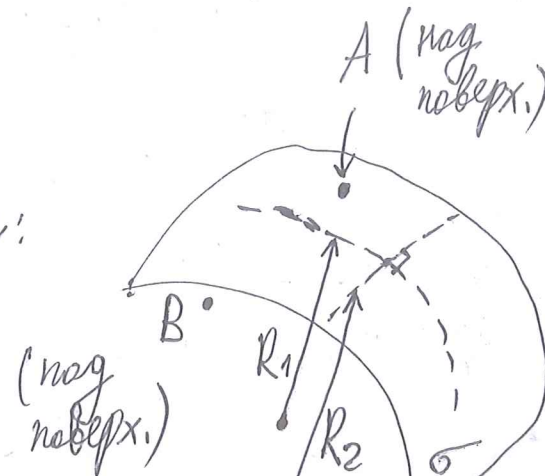 A (над
поверх.)
B
(под
поверх.)
R1
R2
σ